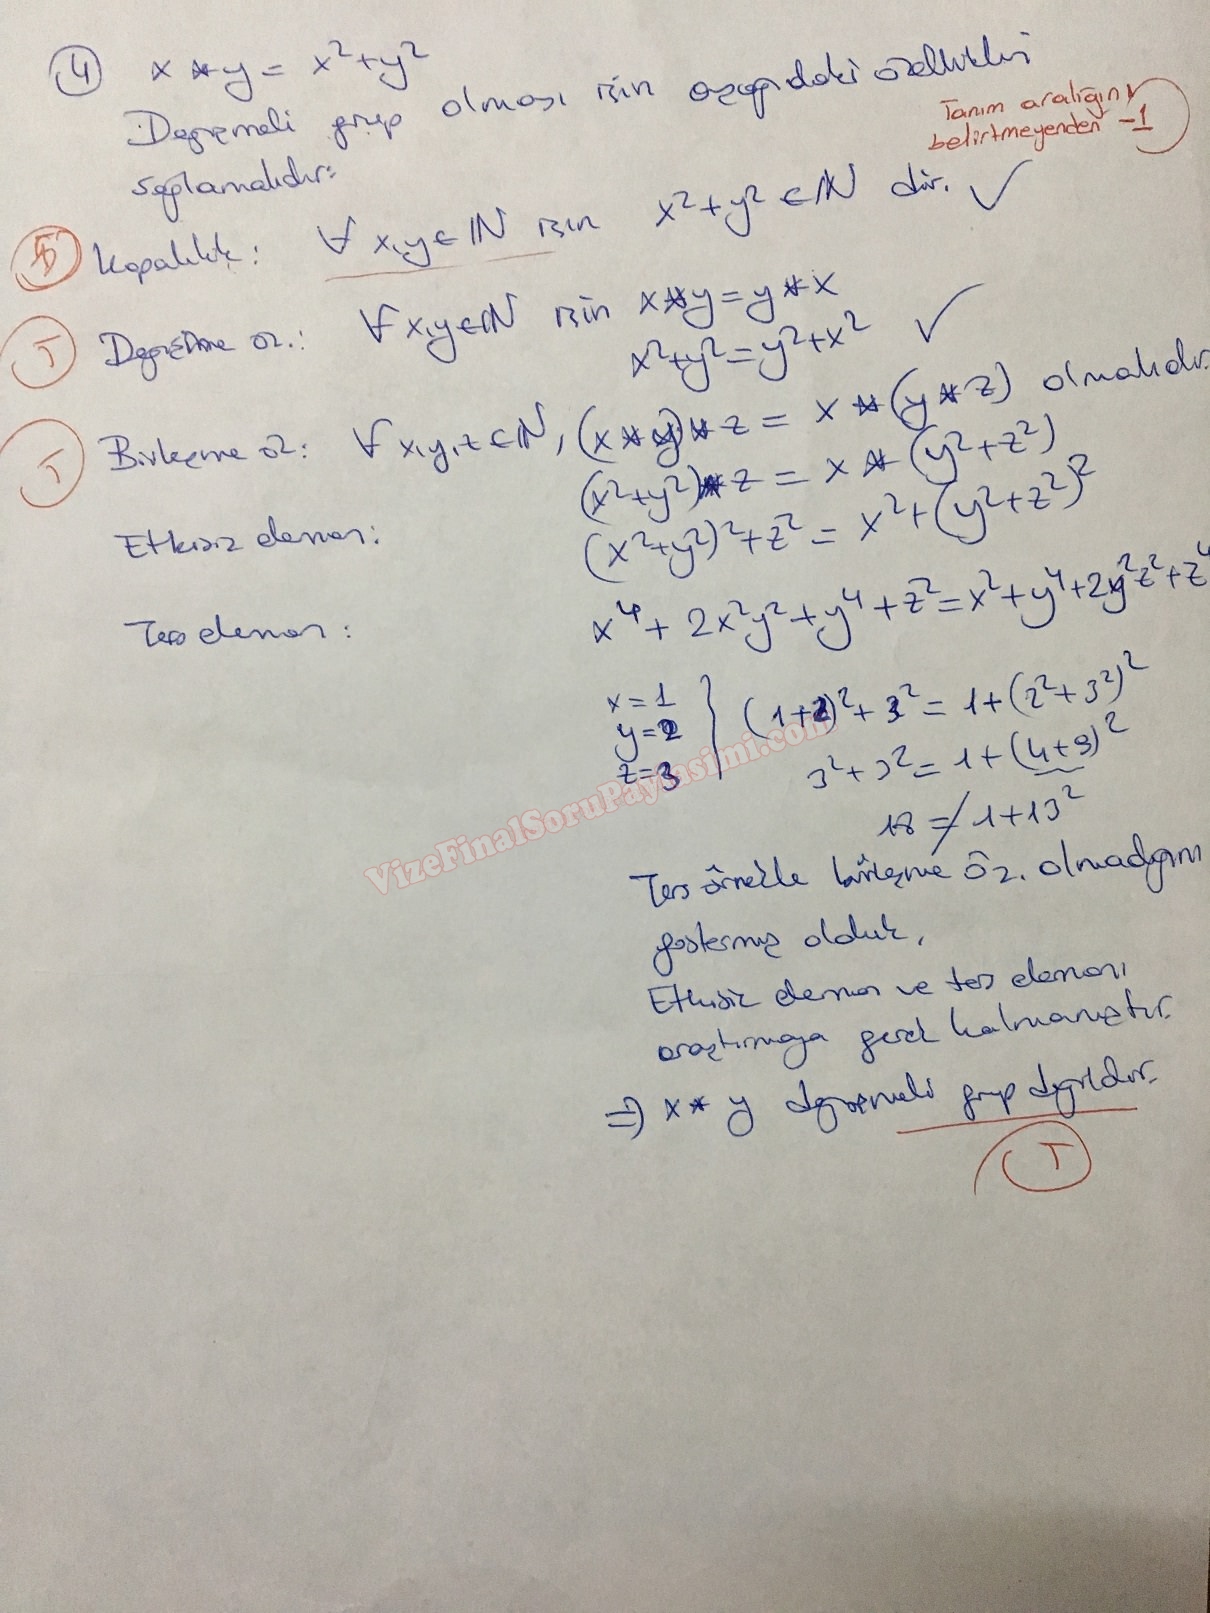 4 x * y = x² + y²
Değişmeli grup olması için aşağıdaki özellikleri
sağlamalıdır:
Tanım aralığını
belirtmeyenden -1
5 Kapalılık: ∀ x,y ∈ ℕ için x² + y² ∈ ℕ dir. ✓
5 Değişme öz.: ∀ x,y ∈ ℕ için x * y = y * x
x² + y² = y² + x² ✓
5 Birleşme öz: ∀ x,y,z ∈ ℕ, (x * y) * z = x * (y * z) olmalıdır.
(x² + y²) * z = x * (y² + z²)
Etkisiz eleman: (x² + y²)² + z² = x² + (y² + z²)²
Ters eleman: x⁴ + 2x²y² + y⁴ + z² = x² + y⁴ + 2y²z² + z⁴
x = 1
y = 2
z = 3
} (1+2)² + 3² = 1 + (2² + 3²)²
3² + 3² = 1 + (4+9)²
18 ≠ 1 + 13²
VizeFinalSoruPaylasimi.com
Ters örnekle birleşme öz. olmadığını
göstermiş olduk.
Etkisiz eleman ve ters elemanı
araştırmaya gerek kalmamıştır.
⇒ x * y değişmeli grup değildir.
5